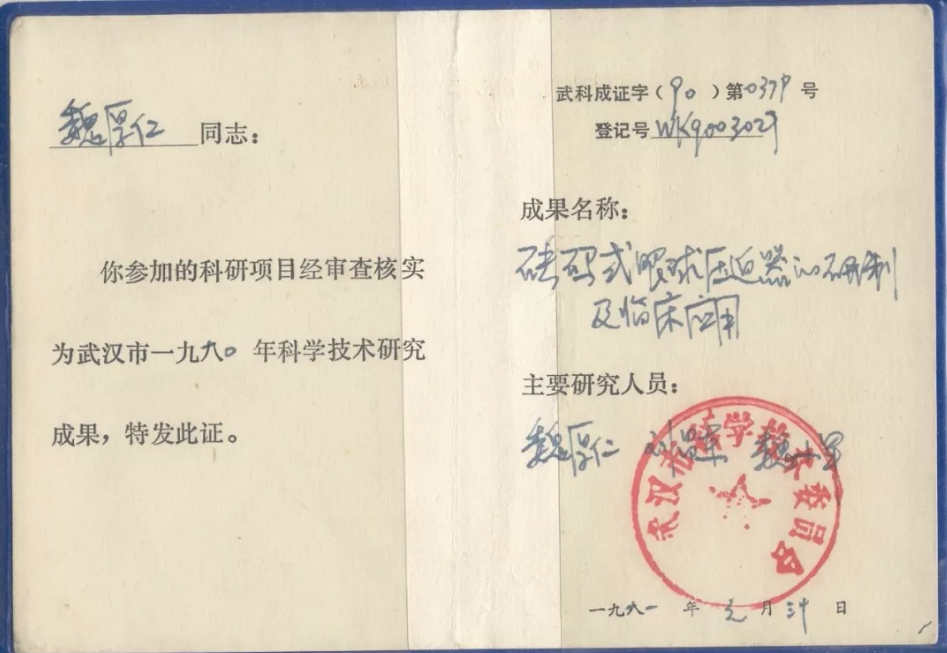 魏厚仁 同志：
你参加的科研项目经审查核实
为武汉市一九九〇年科学技术研究
成果，特发此证。
武科成证字（90）第0379号
登记号 WK9003029
成果名称：
砝码式眼球压迫器的研制
及临床应用
主要研究人员：
魏厚仁
武汉市科学技术委员会
一九九一年元月卅日